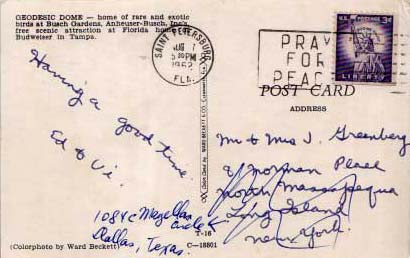 GEODESIC DOME — home of rare and exotic
birds at Busch Gardens, Anheuser-Busch, Inc.'s
free scenic attraction at Florida home of
Budweiser in Tampa.
SAINT PETERSBURG
AUG 7
5 30 PM
1962
FLA.
PRAY
FOR
PEACE
U.S. POSTAGE
3¢
LIBERTY
POST CARD
ADDRESS
Having a good time.
Ed & Vi.
Mr & Mrs J. Greenberg
8 Norman Place
North Massapequa
Long Island
New York.
1084C Magellan
Circle
Dallas, Texas.
T-16
C-18801
(Colorphoto by Ward Beckett)